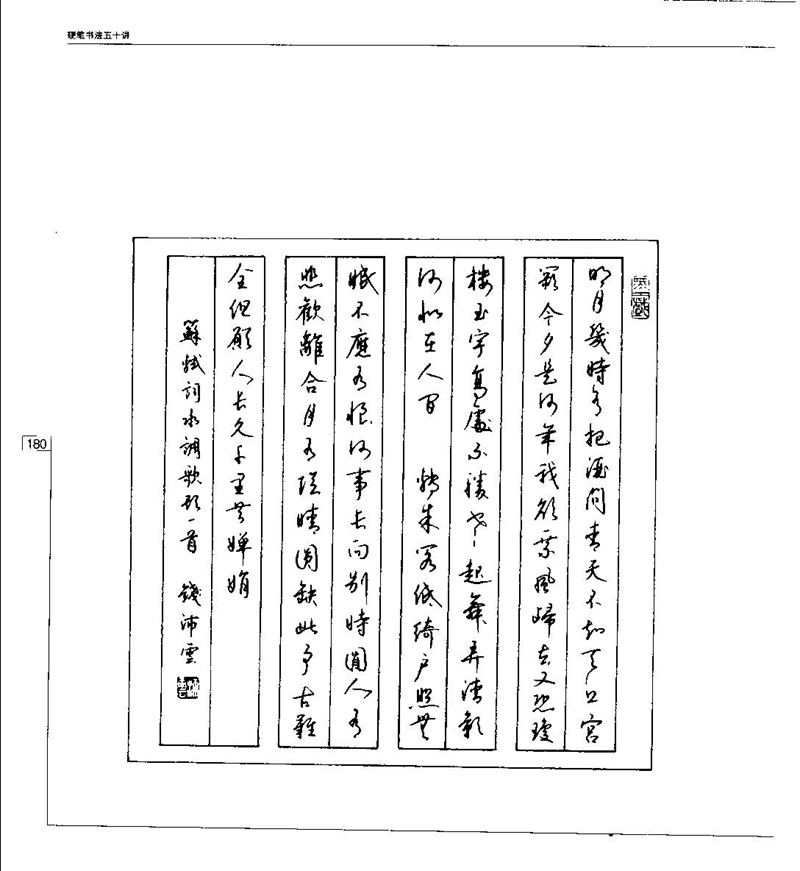 硬笔书法五十讲
明月幾時有把酒問青天不知天上宮
闕今夕是何年我欲乘風歸去又恐瓊
樓玉宇高處不勝寒起舞弄清影
何似在人間　轉朱閣低綺戶照無
眠不應有恨何事長向別時圓人有
悲歡離合月有陰晴圓缺此事古難
全但願人長久千里共嬋娟
蘇軾詞水調歌頭一首　錢沛雲
180